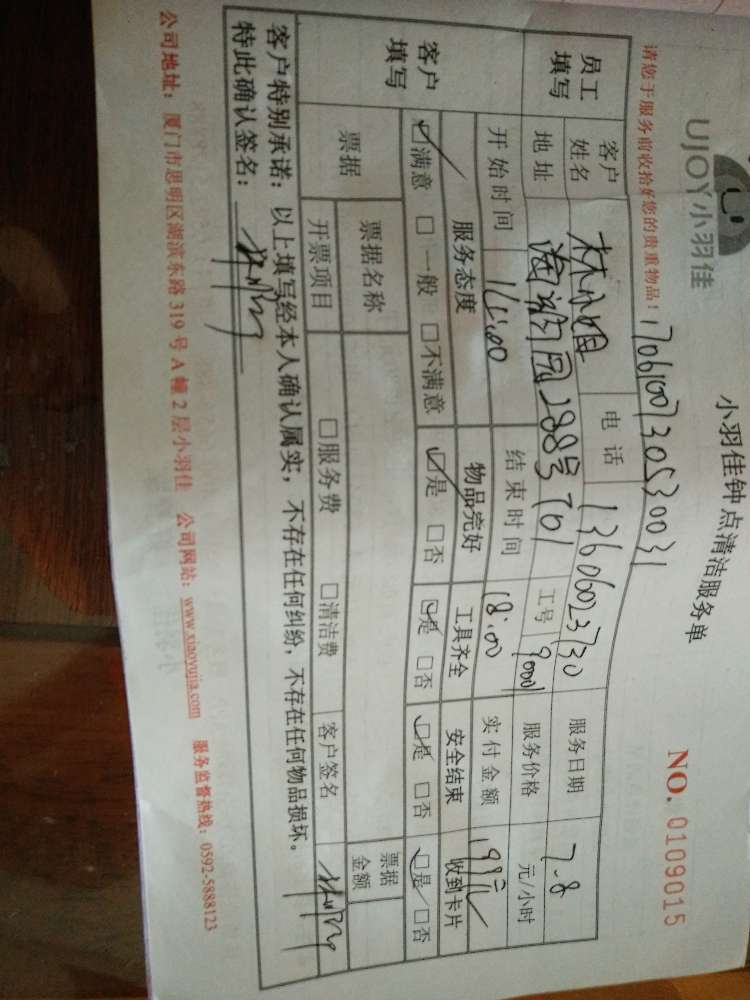 UJOY小羽佳
小羽佳钟点清洁服务单
NO. 0109015
请您于服务前收拾好您的贵重物品!
员工填写 客户姓名 林小姐 电话 13606023730 服务日期 7.8
地址 288号701 工号 90001 服务价格 元/小时
开始时间 15:00 结束时间 18:00 实付金额 199元
客户填写 服务态度 物品完好 工具齐全 安全结束 收到卡片
☑满意 □一般 □不满意 ☑是 □否 ☑是 □否 ☑是 □否 ☑是 □否
票据 票据名称 票据金额
开票项目 □服务费 □清洁费 客户签名
客户特别承诺:以上填写经本人确认属实,不存在任何纠纷,不存在任何物品损坏。
特此确认签名:
公司地址:厦门市思明区湖滨东路319号A幢2层小羽佳 公司网站:www.xiaoyujia.com 服务监督热线:0592-5888123